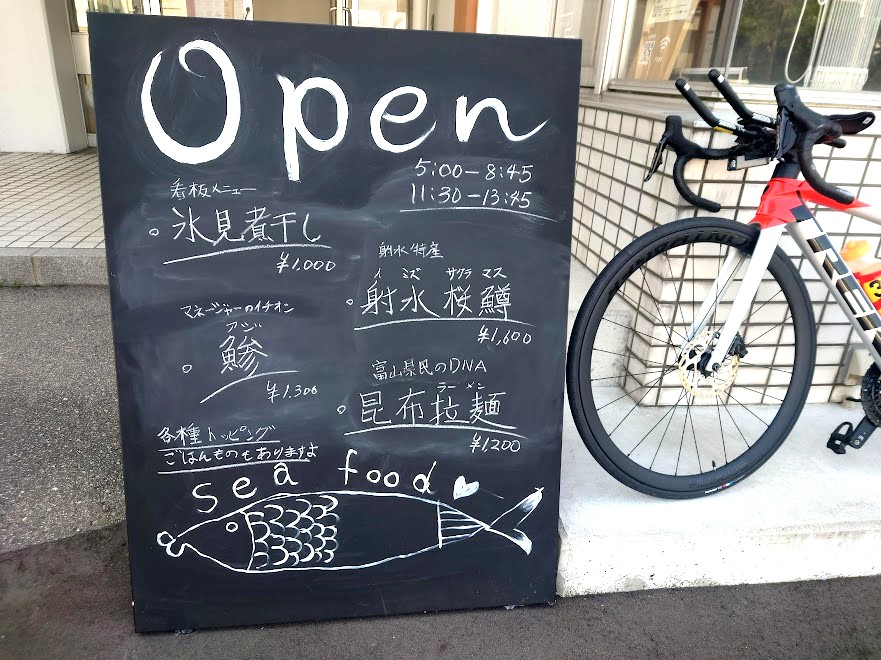 Open
5:00-8:45
11:30-13:45
看板メニュー
氷見煮干し
¥1,000
射水特産
イミズ サクラマス
射水桜鱒
¥1,600
マネージャーのイチオシ
アジ
鯵
¥1.300
富山県民のDNA
ラーメン
昆布拉麺
¥1,200
各種トッピング
ごはんものもありますよ
sea food